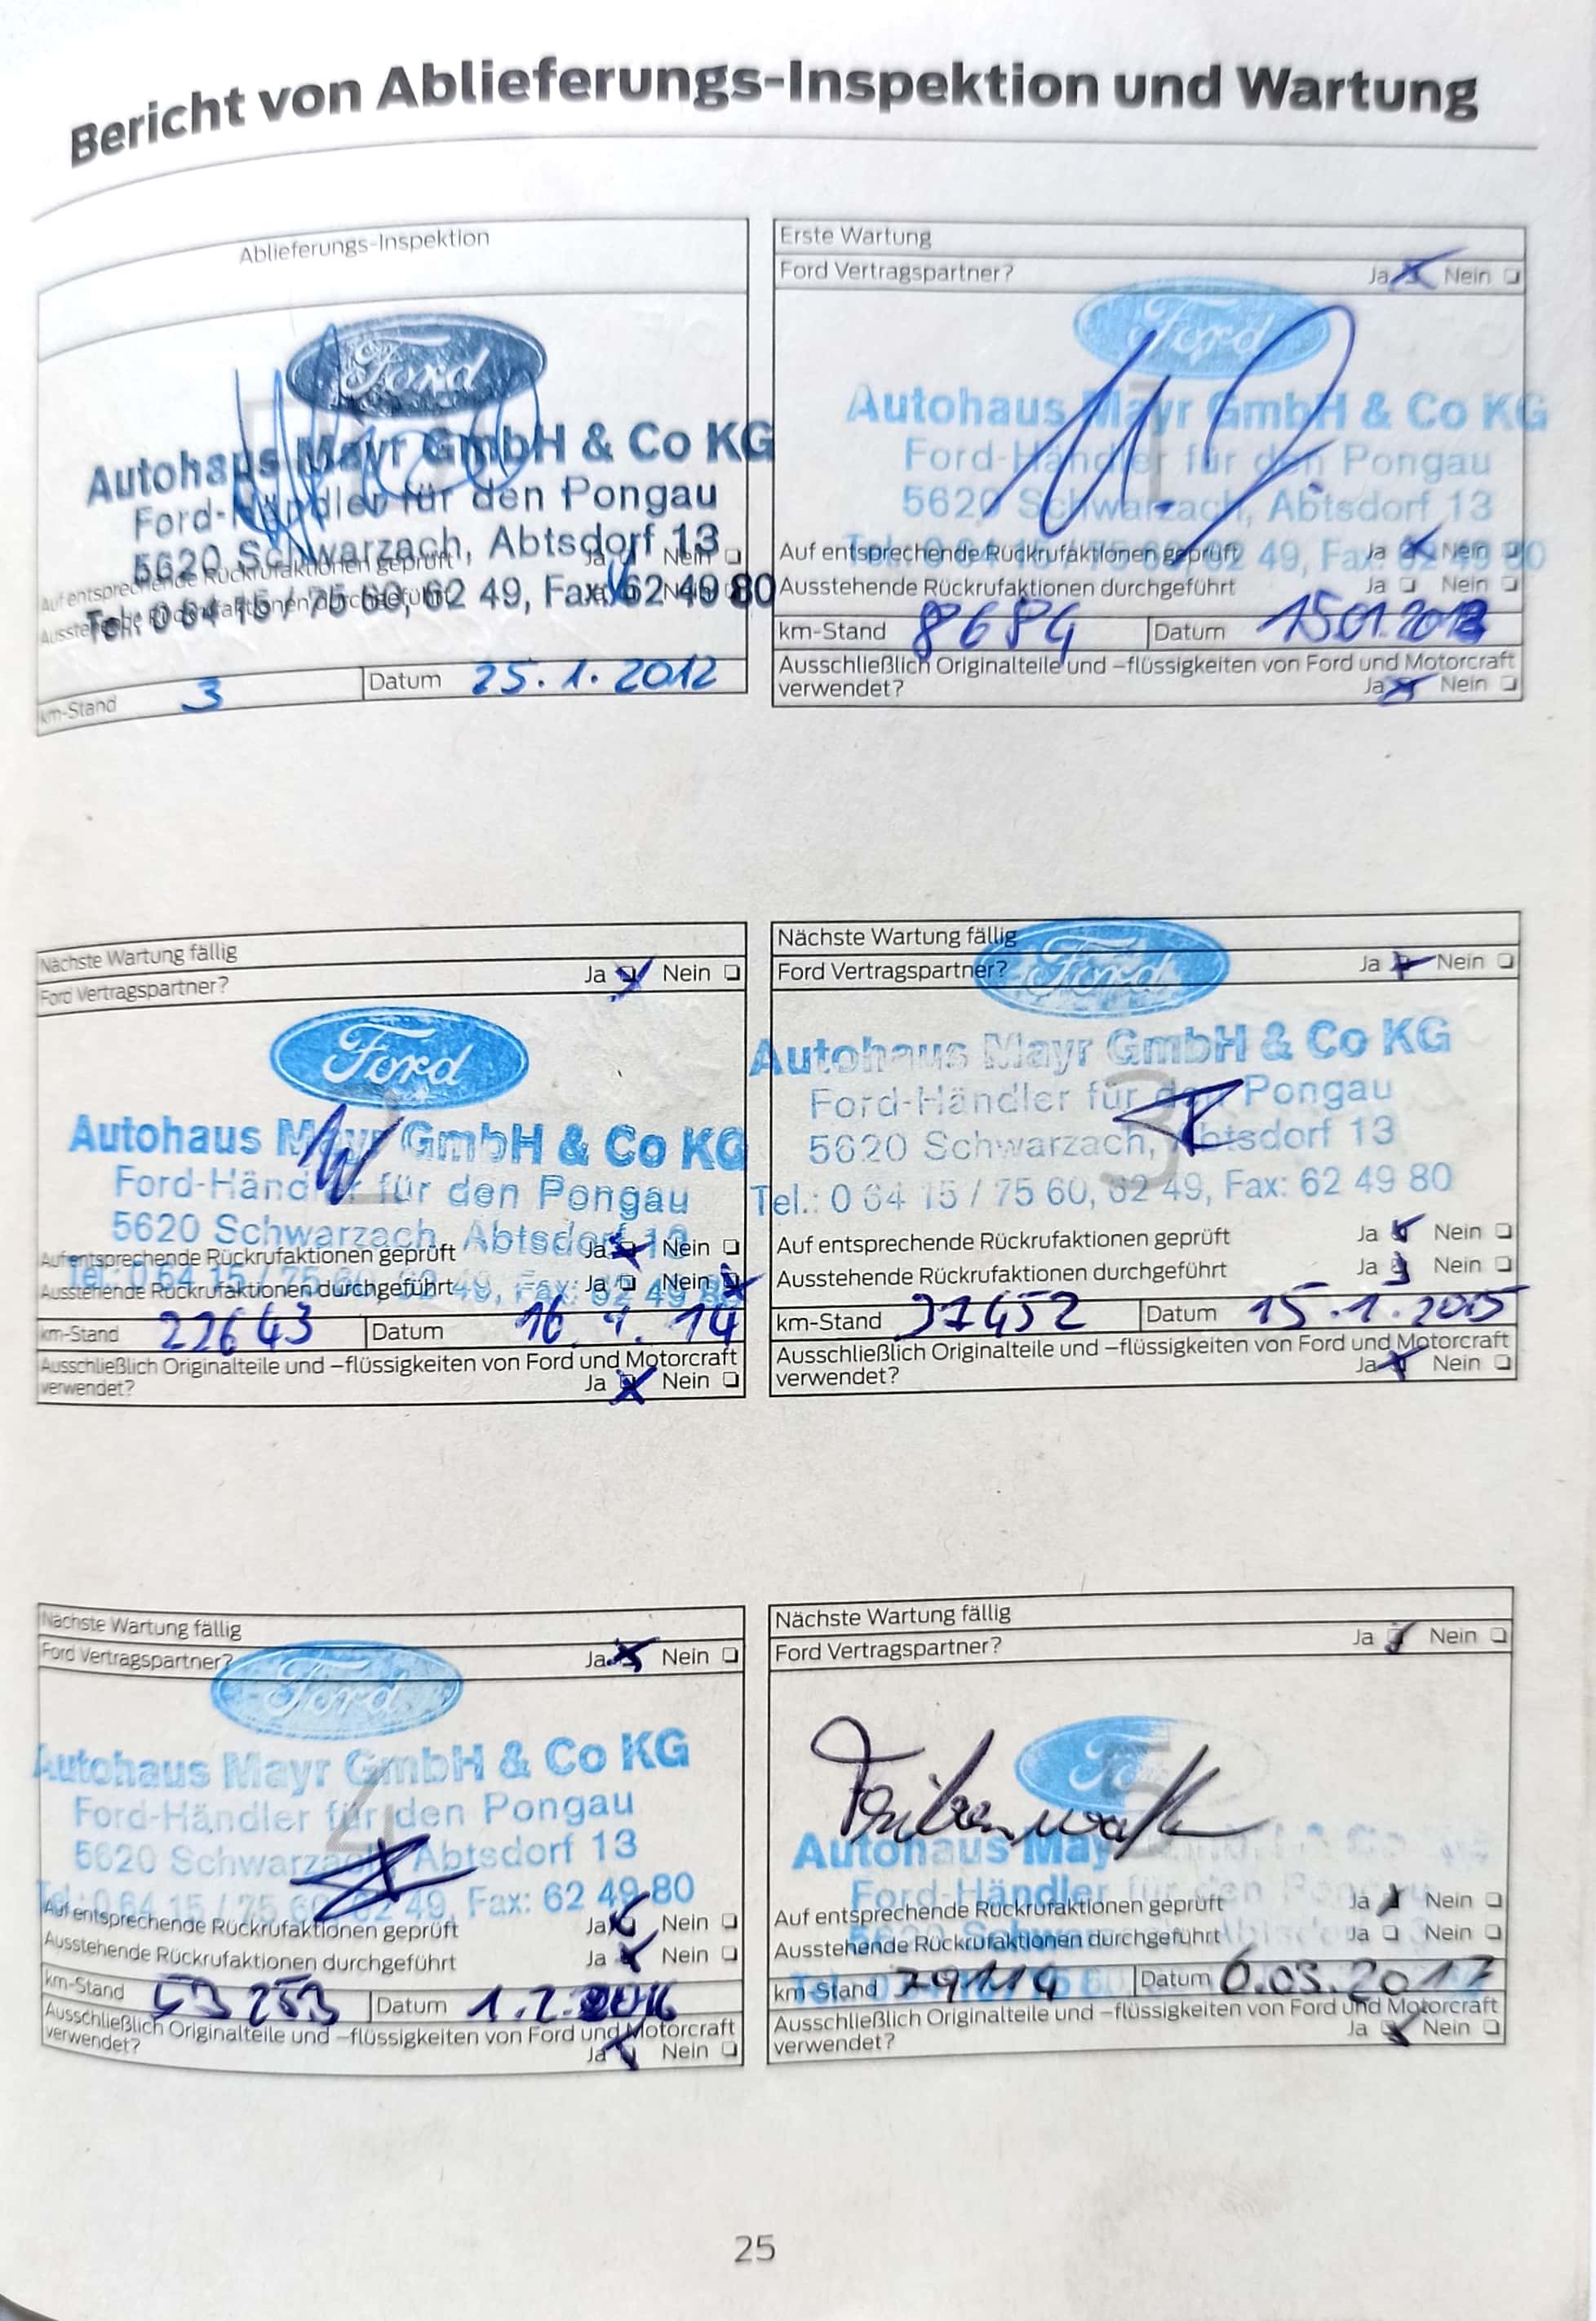 Bericht von Ablieferungs-Inspektion und Wartung
Ablieferungs-Inspektion
Ford
Autohaus Mayr GmbH & Co KG
Ford-Händler für den Pongau
5620 Schwarzach, Abtsdorf 13
Auf entsprechende Rückrufaktionen geprüft Ja Nein
Tel.: 0 64 15 / 75 60, 62 49, Fax: 62 49 80
km-Stand 3 Datum 25.1.2012
Erste Wartung
Ford Vertragspartner? Ja Nein
Ford
Autohaus Mayr GmbH & Co KG
Ford-Händler für den Pongau
5620 Schwarzach, Abtsdorf 13
Auf entsprechende Rückrufaktionen geprüft Ja Nein
Tel.: 0 64 15 / 75 60, 62 49, Fax: 62 49 80
Ausstehende Rückrufaktionen durchgeführt Ja Nein
km-Stand 8684 Datum
Ausschließlich Originalteile und –flüssigkeiten von Ford und Motorcraft
verwendet? Ja Nein
Nächste Wartung fällig
Ford Vertragspartner? Ja Nein
Ford
2
Autohaus Mayr GmbH & Co KG
Ford-Händler für den Pongau
5620 Schwarzach, Abtsdorf 13
Auf entsprechende Rückrufaktionen geprüft Ja Nein
Tel.: 0 64 15 / 75 60, 62 49, Fax: 62 49 80
Ausstehende Rückrufaktionen durchgeführt Ja Nein
km-Stand 22643 Datum 16.1.14
Ausschließlich Originalteile und –flüssigkeiten von Ford und Motorcraft
verwendet? Ja Nein
Nächste Wartung fällig
Ford Vertragspartner? Ja Nein
Ford
3
Autohaus Mayr GmbH & Co KG
Ford-Händler für den Pongau
5620 Schwarzach, Abtsdorf 13
Tel.: 0 64 15 / 75 60, 62 49, Fax: 62 49 80
Auf entsprechende Rückrufaktionen geprüft Ja Nein
Ausstehende Rückrufaktionen durchgeführt Ja Nein
km-Stand 37452 Datum 15.1.2015
Ausschließlich Originalteile und –flüssigkeiten von Ford und Motorcraft
verwendet? Ja Nein
Nächste Wartung fällig
Ford Vertragspartner? Ja Nein
Ford
4
Autohaus Mayr GmbH & Co KG
Ford-Händler für den Pongau
5620 Schwarzach, Abtsdorf 13
Tel.: 0 64 15 / 75 60, 62 49, Fax: 62 49 80
Auf entsprechende Rückrufaktionen geprüft Ja Nein
Ausstehende Rückrufaktionen durchgeführt Ja Nein
km-Stand 53253 Datum 1.2.2016
Ausschließlich Originalteile und –flüssigkeiten von Ford und Motorcraft
verwendet? Ja Nein
Nächste Wartung fällig
Ford Vertragspartner? Ja Nein
Ford
5
Autohaus Mayr
Ford-Händler für den
Auf entsprechende Rückrufaktionen geprüft Ja Nein
Ausstehende Rückrufaktionen durchgeführt Ja Nein
km-Stand 79114 Datum 6.03.2017
Ausschließlich Originalteile und –flüssigkeiten von Ford und Motorcraft
verwendet? Ja Nein
25